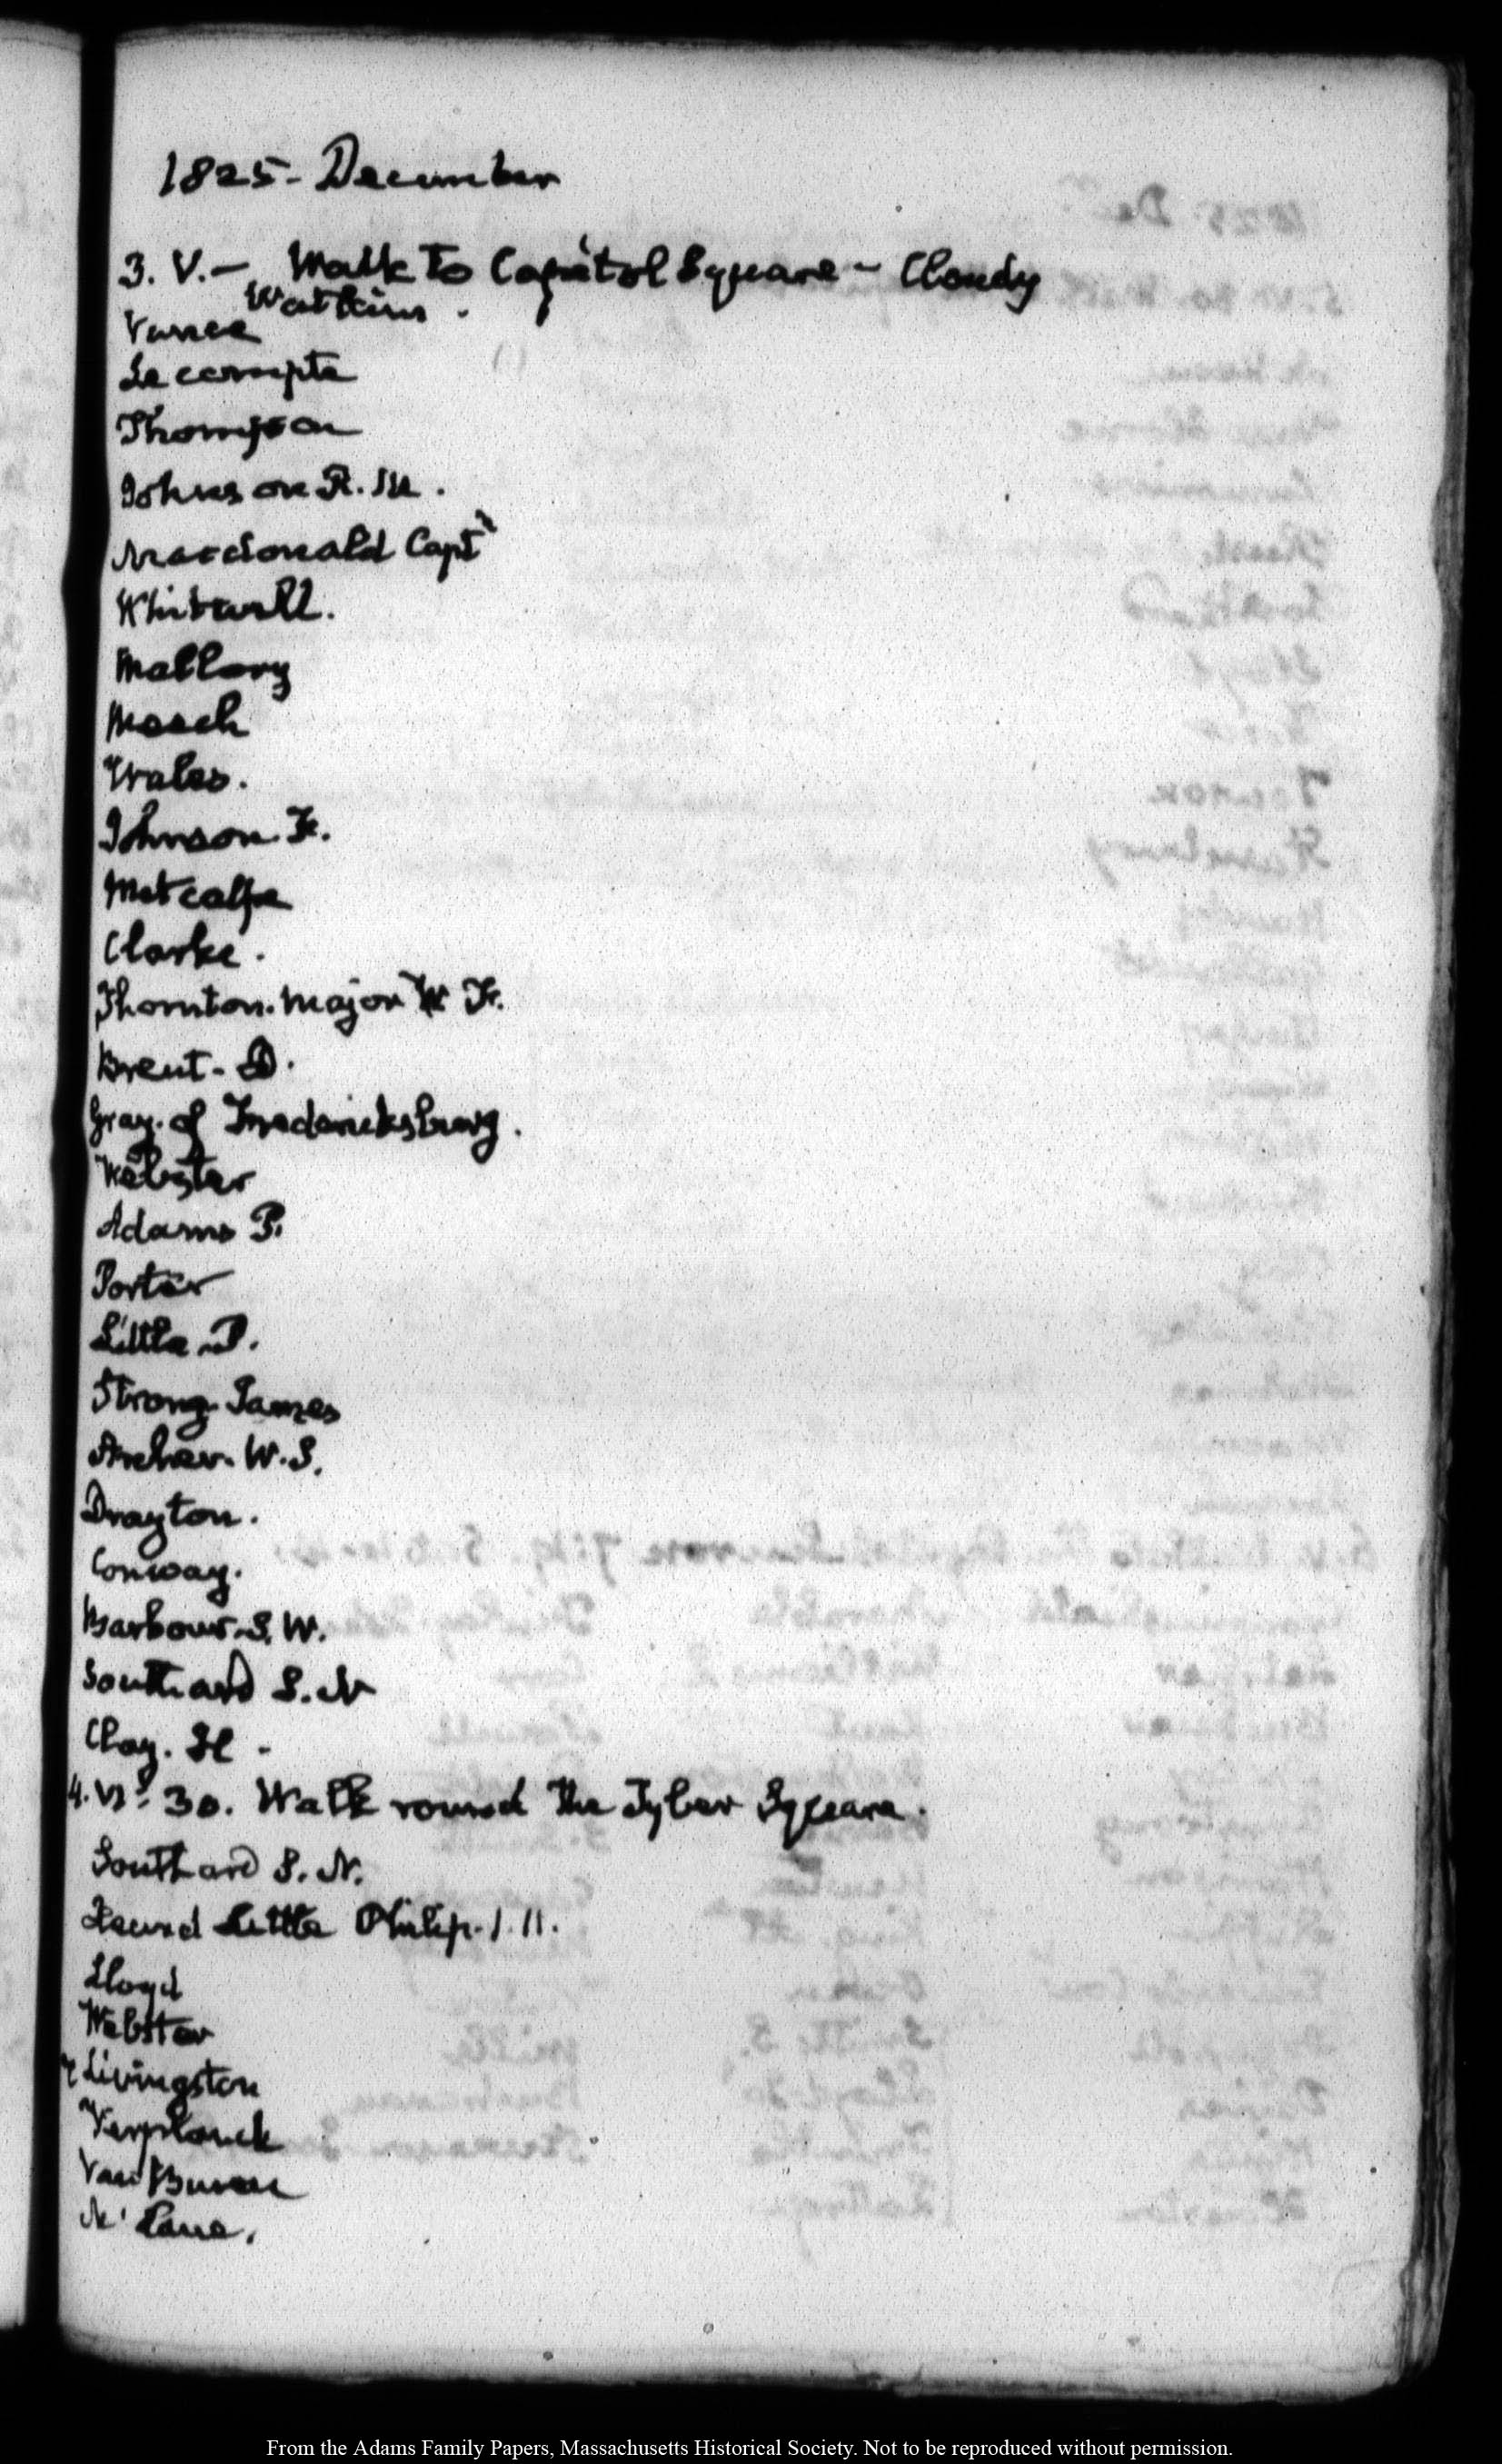 1825 - December
3. V. — Walk to Capitol Square - Cloudy
Watkins.
Vance
Lecompte
Thompson
Johnson R. M.
Macdonald Capt
Whitwell.
Mallary
Meech
Wales.
Johnson. Fr.
Metcalfe
Clarke.
Thornton. Major W Fr.
Brent - D.
Gray. of Fredericksburg.
Webster
Adams P.
Porter
Little. P.
Strong. James
Archer. W. S.
Drayton.
Conway.
Barbour. S. W.
Southard S. N
Clay. H -
4. VI: 30. Walk round the Tyber Square.
Southard S. N.
Found Little Philip. 1. 11.
Lloyd
Webster
Livingston
Verplanck
Van Buren
McLane.
From the Adams Family Papers, Massachusetts Historical Society. Not to be reproduced without permission.